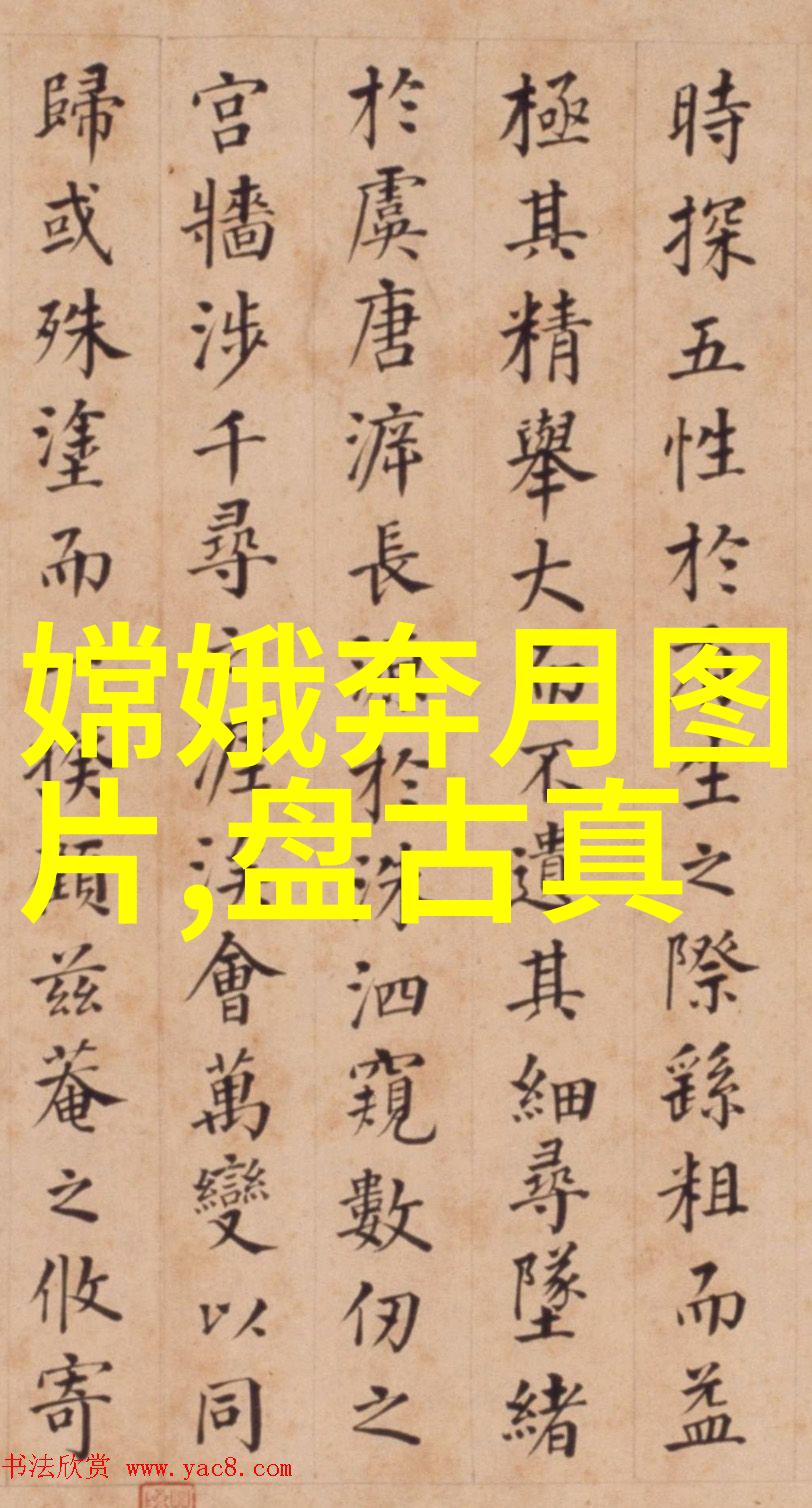 時探五性於生之際繇粗而益
極其精舉大而不遺其細尋墜緒
於虞唐滹長源於洙泗窺數仞之
宮牆涉千尋涯涘會萬變以同
歸或殊塗而俟顧茲菴之攸寄
嫦娥奔月图
片,盘古真
书法欣赏 www.yac8.com